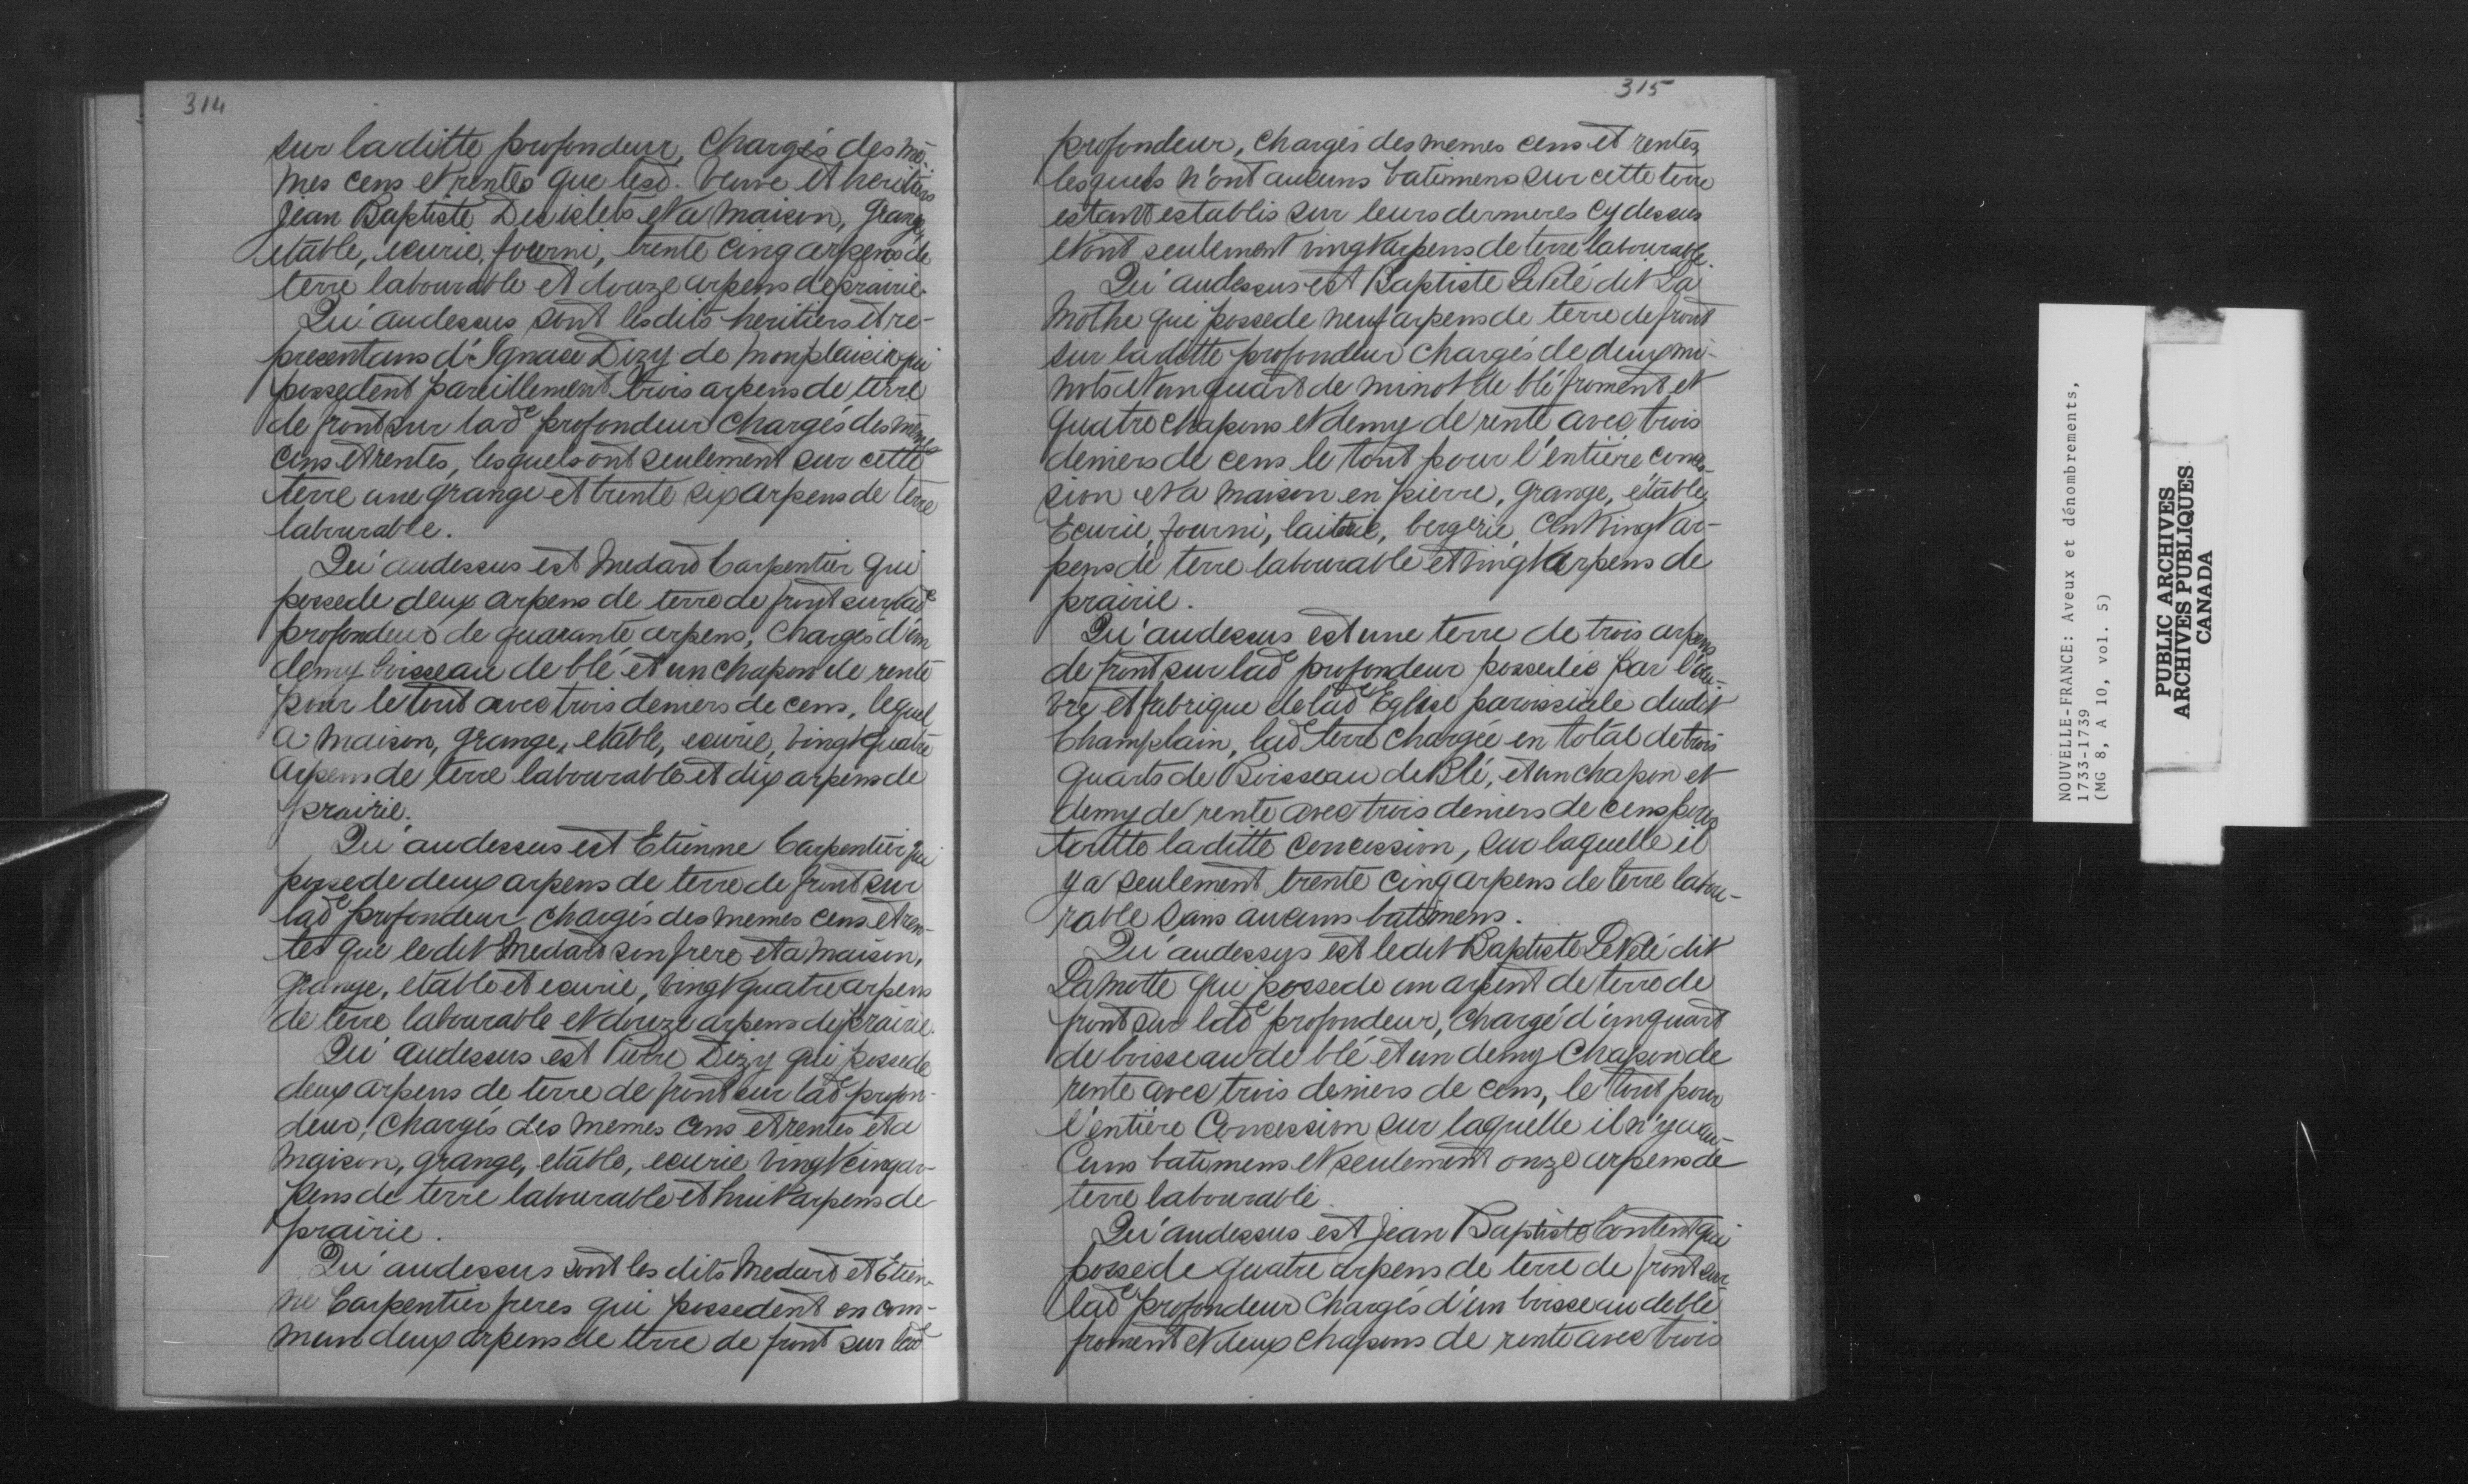 314
sur laditte profondeur, chargés des mê-
mes cens et rentes que lesd. veuve et heritiers
Jean Baptiste Desislets et a maison, grange,
etable, ecurie, fourni, trente cinq arpens de
terre labourable et douze arpens de prairie.
Qu'audessus sont lesdits heritiers et re-
presentans d'Ignace Dizy de Monplaisir qui
possedent pareillement trois arpens de terre
de front sur lade profondeur chargés des mêmes
cens et rentes, lesquels ont seulement sur cette
terre une grange et trente six arpens de terre
labourable.
Qu'audessus est Medard Carpentier qui
possede deux arpens de terre de front sur lade
profondeur de quarante arpens, chargés d'un
demy boisseau de blé et un chapon de rente
pour le tout avec trois deniers de cens, lequel
a maison, grange, etable, ecurie, vingt quatre
arpens de terre labourable et dix arpens de
prairie.
Qu'audessus est Etienne Carpentier qui
possede deux arpens de terre de front sur
lade profondeur chargés des memes cens et ren-
tes que ledit Medard son frere et a maison,
grange, etable et ecurie, vingt quatre arpens
de terre labourable et douze arpens de prairie.
Qu'audessus est Pierre Dizy qui possede
deux arpens de terre de front sur lade profon-
deur, chargés des memes cens et rentes et a
maison, grange, etable, ecurie vingt cinq ar-
pens de terre labourable et huit arpens de
prairie.
Qu'audessus sont les dits Medard et Etien-
ne Carpentier freres qui possedent en com-
mun deux arpens de terre de front sur lade
315
profondeur, chargés des memes cens et rentes,
lesquels n'ont aucuns batimens sur cette terre
estant establis sur leurs dernieres cy dessus
et ont seulement vingt arpens de terre labourable.
Qu'audessus est Baptiste LeVelé dit La
Mothe qui possede neuf arpens de terre de front
sur laditte profondeur chargés de deux mi-
nots et un quart de minot de blé froment et
quatre chapons et demy de rente avec trois
deniers de cens le tout pour l'entière conces-
sion et a maison en pierre, grange, étable,
Ecurie, fourni, laiterie, bergerie, cent vingt ar-
pens de terre labourable et vingt arpens de
prairie.
Qu'audessus est une terre de trois arpens
de front sur lade profondeur possedée par l'oeu-
vre et fabrique de lade Eglise paroissiale dudit
Champlain, lade terre chargée en total de trois
quarts de Boisseau de Blé, et un chapon et
demy de rente avec trois deniers de cens pour
toutte laditte concession, sur laquelle il
y a seulement trente cinq arpens de terre labou-
rable sans aucuns batimens.
Qu'audessus est ledit Baptiste LeVelé dit
Lamotte qui possede un arpent de terre de
front sur lade profondeur, chargé d'un quart
de boisseau de blé et un demy chapon de
rente avec trois deniers de cens, le tout pour
l'entière Concession sur laquelle il n'y a au-
cuns batimens et seulement onze arpens de
terre labourable.
Qu'audessus est Jean Baptiste Content qui
possede quatre arpens de terre de front sur
lade profondeur chargés d'un boisseau de blé
froment et deux chapons de rente avec trois
NOUVELLE-FRANCE: Aveux et dénombrements,
1733-1739
(MG 8, A 10, vol. 5)
PUBLIC ARCHIVES
ARCHIVES PUBLIQUES
CANADA